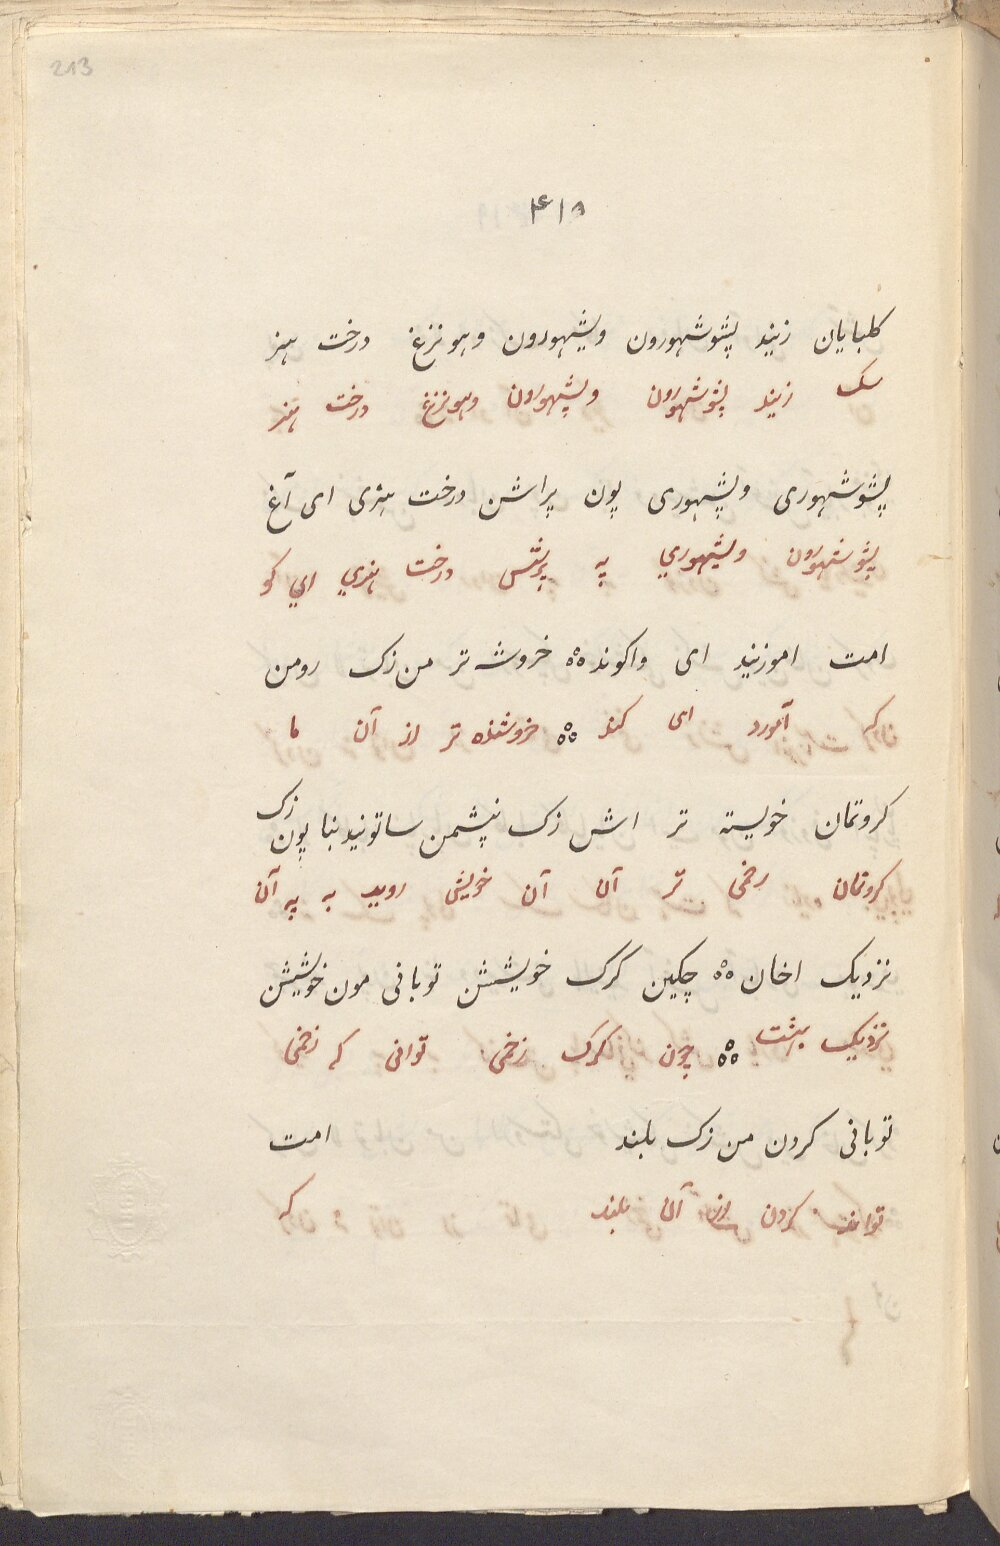 213
۴۱۵
کلبایان زنید پشوشهورون ویشیهورون وهونزغ درخت هنر
سک زنید پشوشهورون ویشیهورون وهونزغ درخت هنر
پشوشهوری ویشیهوری پون پراشن درخت هنری ای آغ
پشوشهورون ویشیهوري په درخت هنري اي کو
امت اموزنید ای واکوند ؞ خروشه تر من زک رومن
که آمورد ای کند ؞ خروشنده تر از آن ما
کروتمان خویسته تر اش زک نپشمن ساتونید بنا پون زک
کروتمان رخمی تر آن آن خویش روید به په آن
نزدیک اخان ؞ چکین کرک خویشش توبانی مون خویشش
نزدیک بهشت ؞ چون کرک زخمی توانی که زخمی
توبانی کردن من زک بلند امت
تواند کردن از آن بلند که